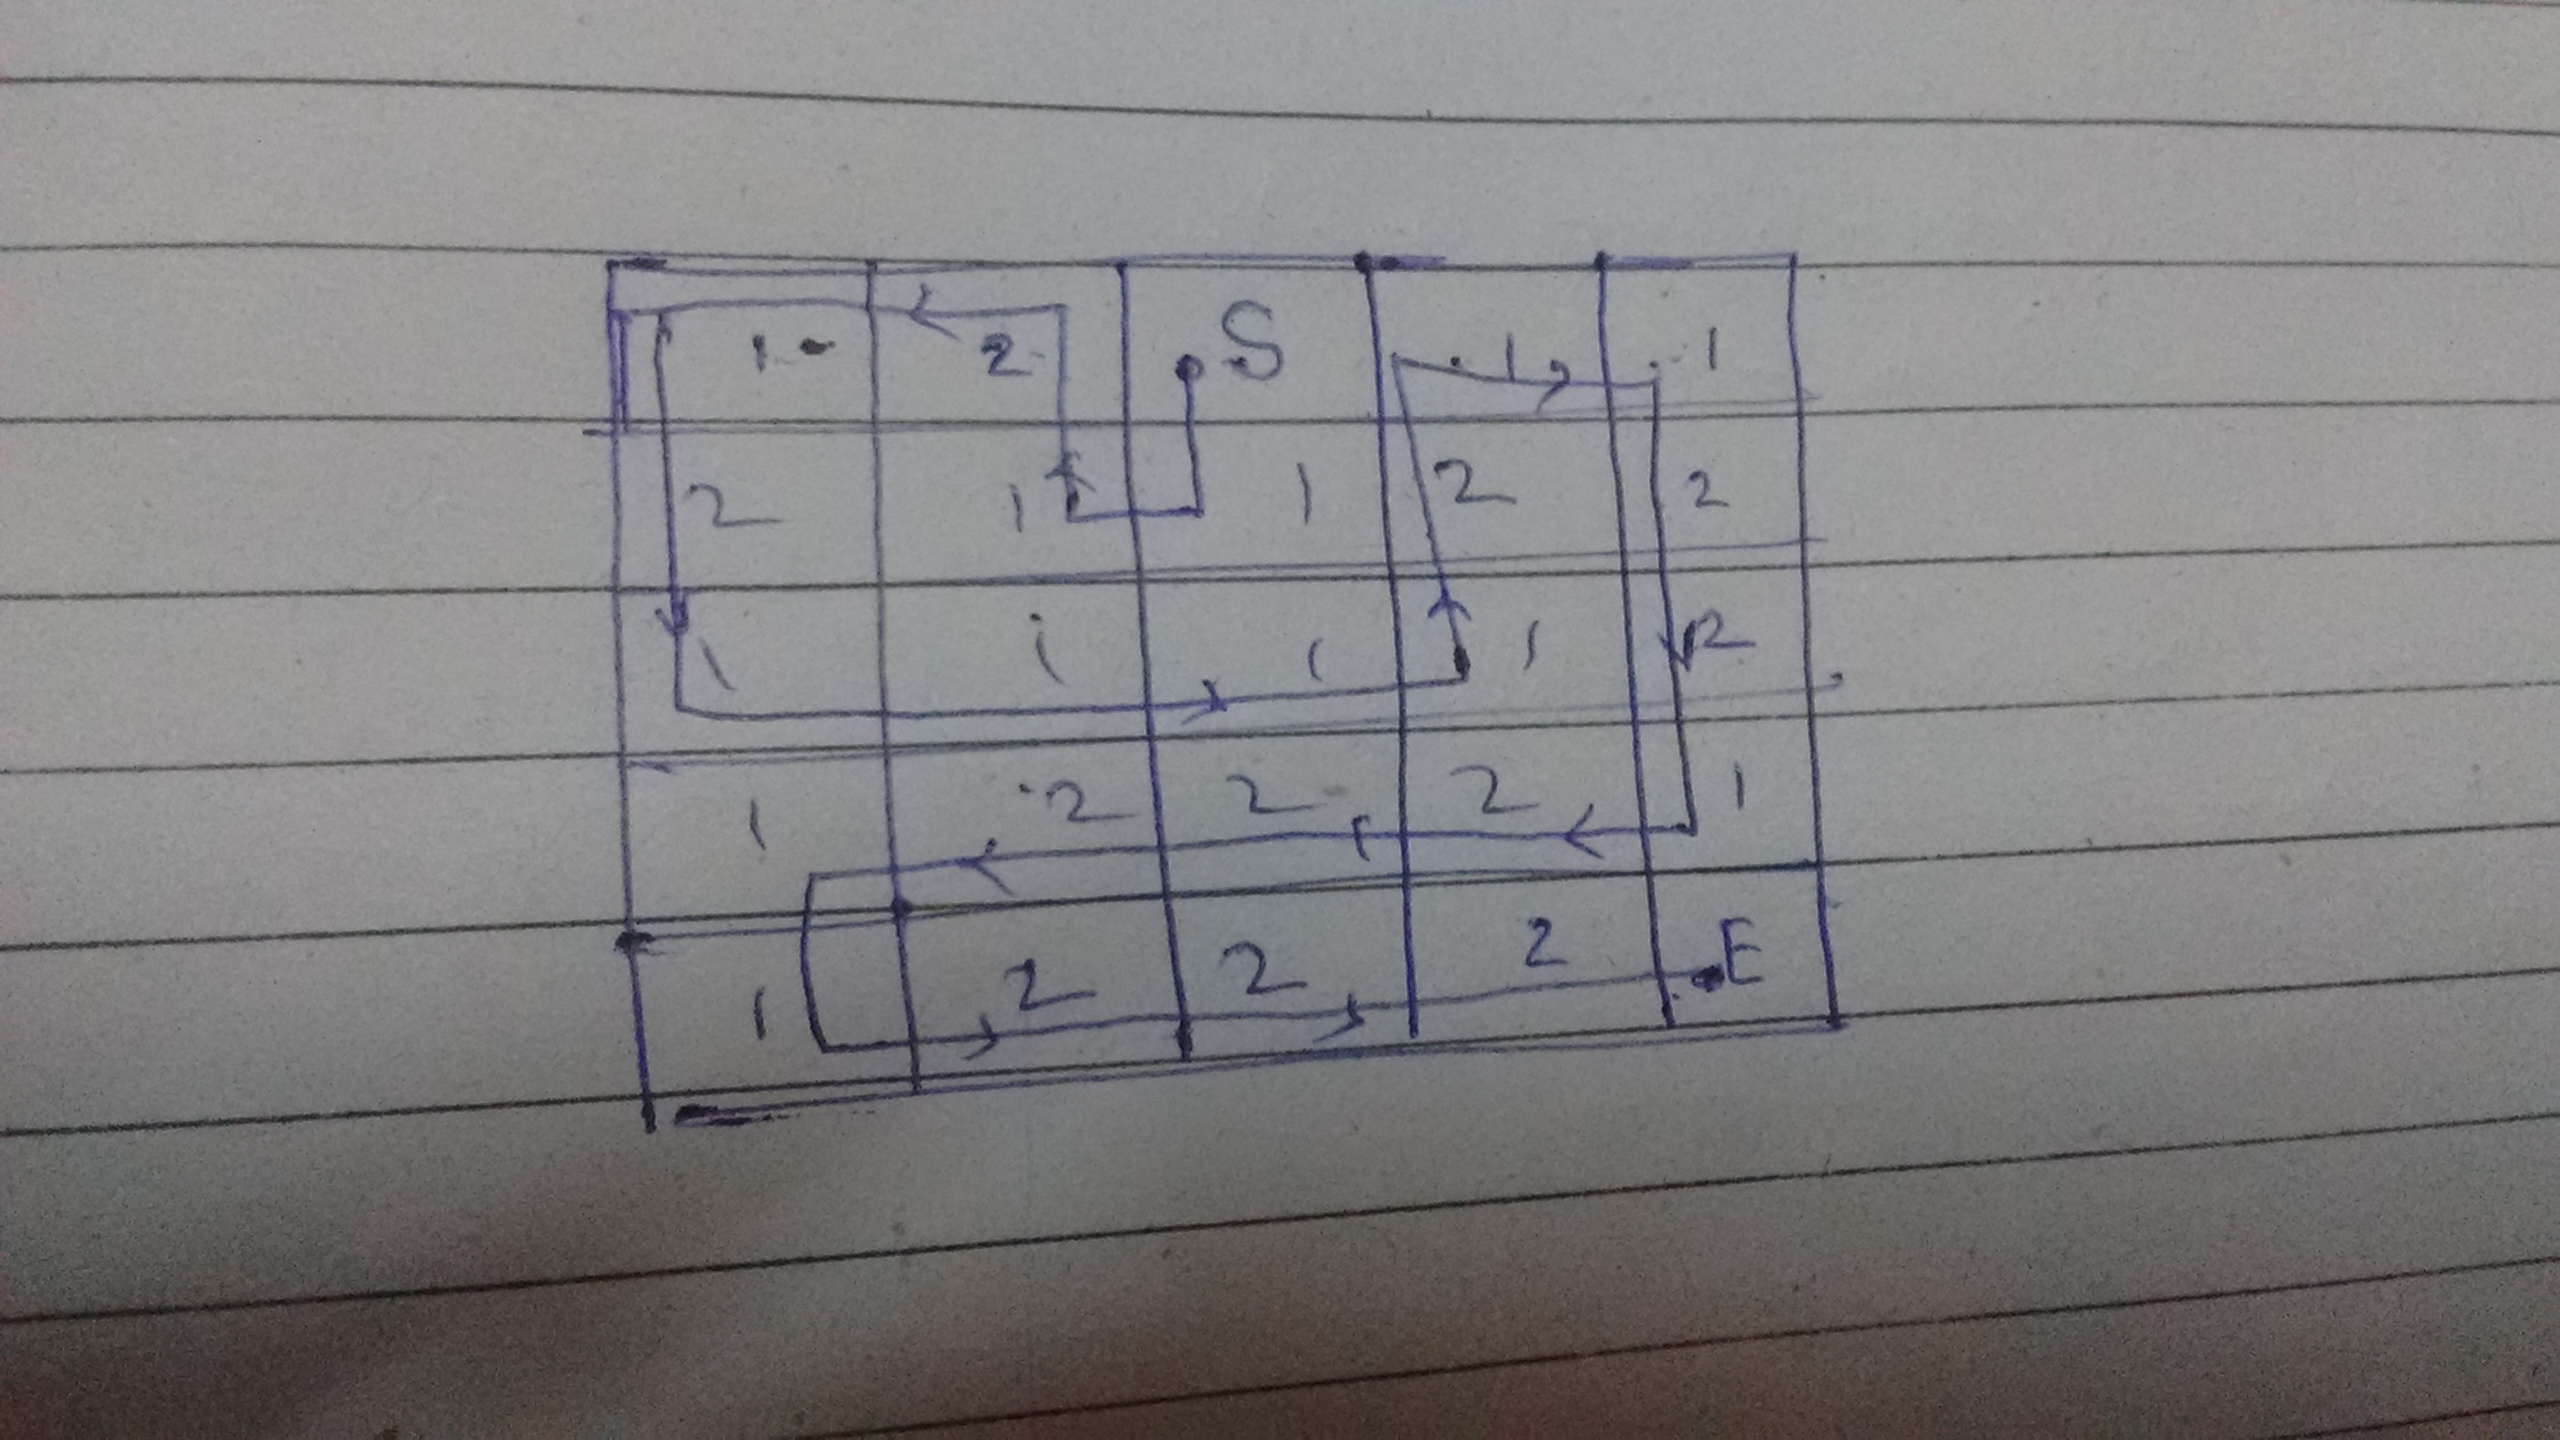 1 2 S 1 1
2 1 1 2 2
1 1 1 1 2
1 2 2 2 1
1 2 2 2 E